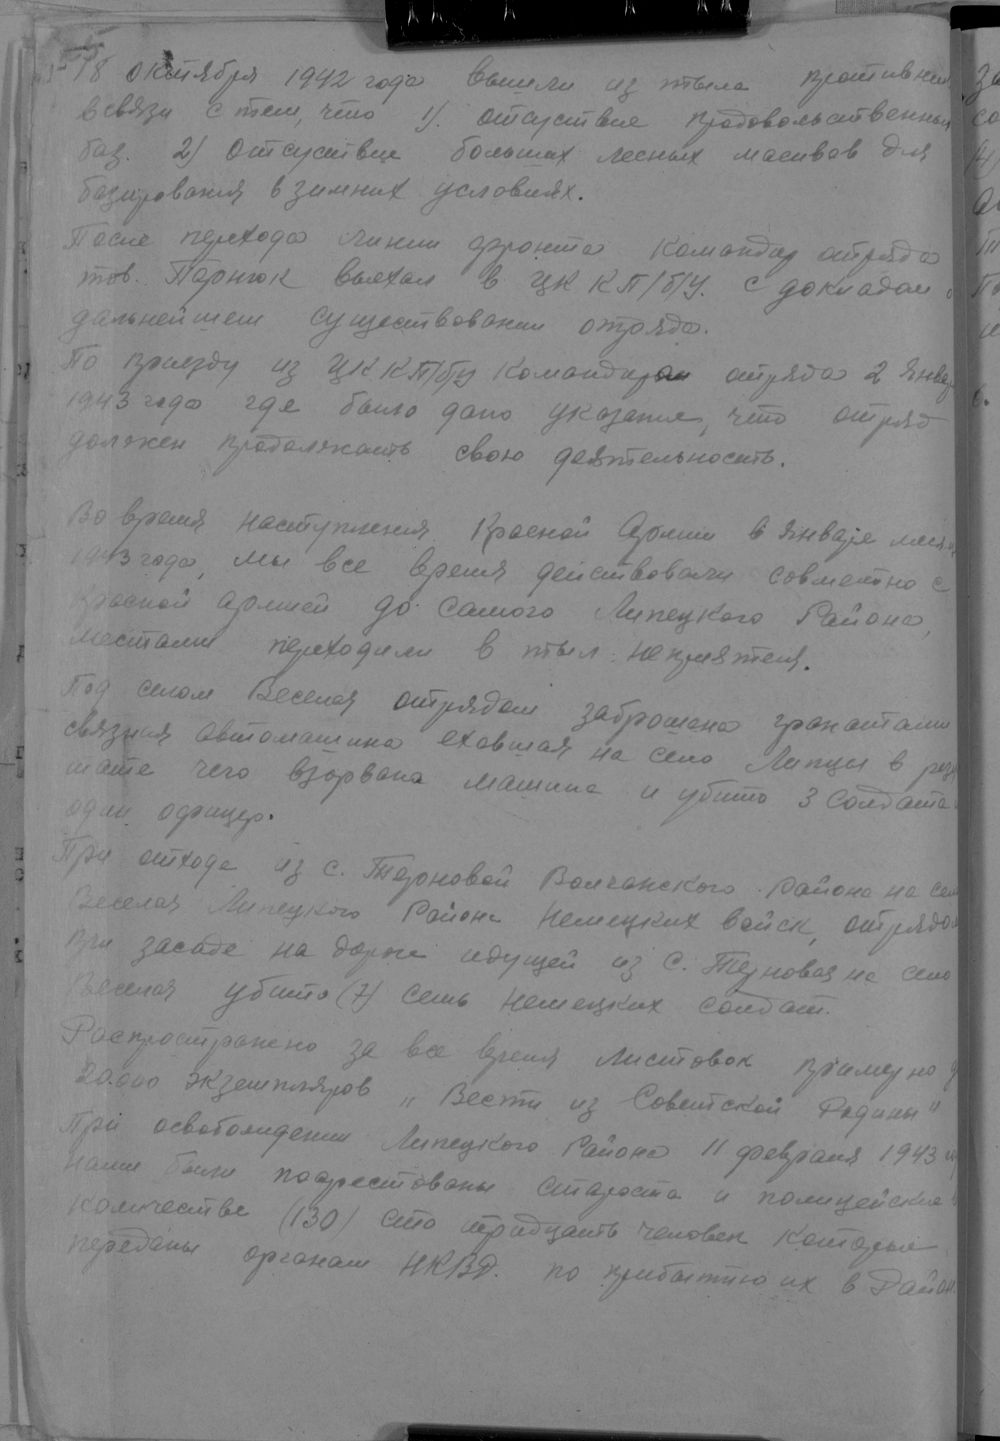 18 октября 1942 года вышли из тыла противни
в связи с тем, что 1). отсутствие продовольственных
баз. 2) отсутствие больших лесных масивов для
базирования в зимних условиях.
После перехода линии фронта командир отряда
тов. выехал в ЦК КП/б/У. с докладом о
дальнейшем существовании отряда.
По приезду из ЦК КП/б/У командиром отряда 2 янва
1943 года где было дано указание, что отряд
должен продолжать свою деятельность.
Во время наступления Красной Армии в январе
1943 года, мы все время действовали совместно с
Красной армией до самого Липецкого Района,
местами переходили в тыл неприятеля.
Под селом Веселая отрядом заброшена гранатами
связная автомашина ехавшая на село Липцы в резу
тате чего взорвана машина и убито 3 солдата и
один офицер.
При отходе из с. Терновой Волчанского района на село
Веселая Липецкого Района немецких войск, отрядом
при засаде на дороге идущей из с. Терновая на село
Веселая убито (7) семь немецких солдат.
Распространено за все время листовок примерно д
20.000 экземпляров „Вести из Советской Родины"
При освобождении Липецкого Района 11 февраля 1943
нами были поарестованы староста и полицейские
количестве (130) сто тридцать человек которые
переданы органам НКВД. по прибытию их в Район.
За
со